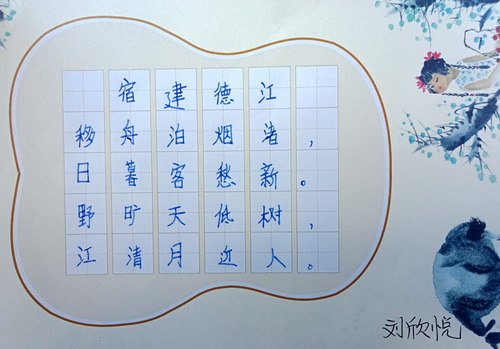 宿建德江
移舟泊烟渚，
日暮客愁新。
野旷天低树，
江清月近人。
刘欣悦